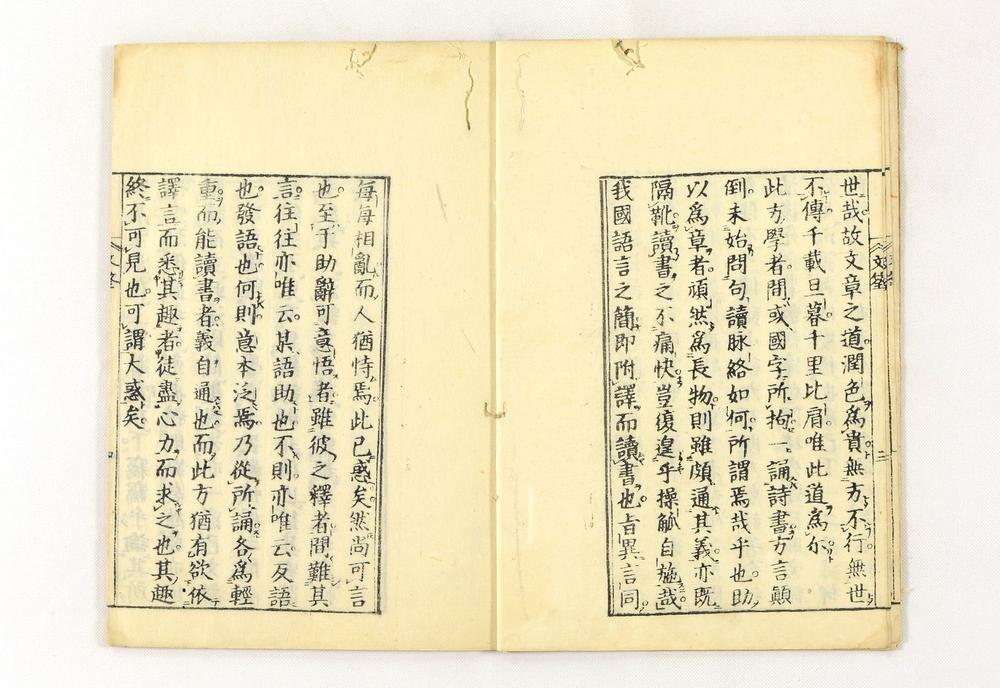 世哉故文章之道潤色爲貴無方不行無世
不傳千載旦暮千里比肩唯此道爲尓
此方學者間或國字所拘一誦詩書方言顚
倒未始問句讀脉絡如何所謂焉哉乎也助
以爲章者頑然爲長物則雖頗通其義亦既
隔靴讀書之不痛快豈復遑乎操觚自施哉
我國語言之簡即附譯而讀書也旨異言同
每每相亂而人猶恃焉此已惑矣然尚可言
也至于助辭可意悟者雖彼之釋者間難其
言往往亦唯云某語助也不則亦唯云反語
也發語也何則意本泛焉乃從所誦各爲輕
重而能讀書者義自通也而此方猶有欲依
譯言而悉其趣者徒盡心力而求之也其趣
終不可見也可謂大惑矣
文筌
二